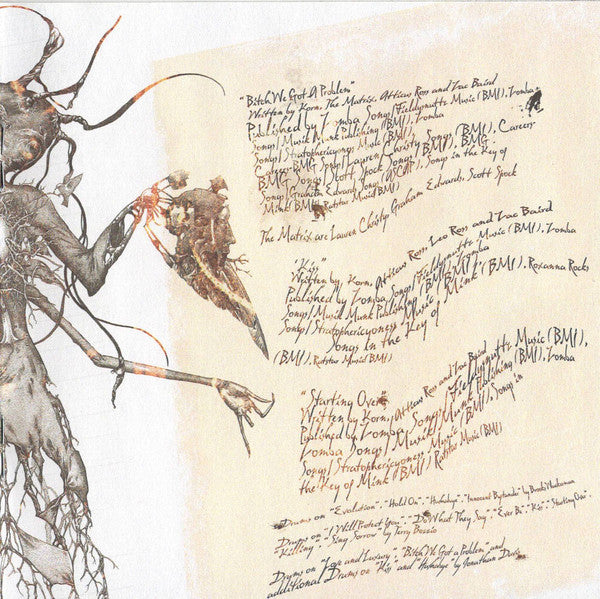 "Bitch We Got A Problem"
Written by Korn, The Matrix, Atticus Ross and Zac Baird
Published by Zomba Songs/Fieldysnuttz Music (BMI), Zomba
Songs/Musik Munk Publishing (BMI), Zomba
Songs/Stratosphericyoness Music (BMI),
Career-BMG Songs/Lauren Christy Songs (BMI), Careers
BMG Songs/Scott Spock Songs (BMI), BMG
Songs/Graham Edwards Songs (ASCAP), Songs in the Key of
Mink (BMI) Ratstar Music (BMI)
The Matrix are Lauren Christy Graham Edwards, Scott Spock
"Kiss"
Written by, Korn, Atticus Ross, Leo Ross and Zac Baird
Published by Zomba Songs/Fieldysnuttz Music (BMI), Zomba
Songs/Musik Munk Publishing (BMI), Zomba
Songs/Stratosphericyoness Music (BMI), Roxanna Rocks
Songs in the Key of Mink
(BMI), Ratstar Music (BMI)
"Starting Over"
Written by Korn, Atticus Ross and Zac Baird
Published by Zomba Songs/Fieldysnuttz Music (BMI),
Zomba Songs/Musik Munk Publishing (BMI), Zomba
Songs/Stratosphericyoness Music (BMI), Songs in
the Key of Mink (BMI) Ratstar Music (BMI)
Drums on "Evolution", "Hold On", "Hushabye", "Innocent Bystander" by Brooks Wackerman
Drums on "I Will Protect You", "Do What They Say", "Ever Be", "Kiss", "Starting Over"
"Killing", "Sing Sorrow" by Terry Bozzio
Drums on "Love and Luxury", "Bitch We Got a Problem" and
additional Drums on "Kiss" and "Hushabye" by Jonathan Davis